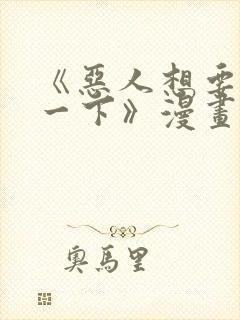 《惡人想要
一下》漫畫
奧馬里